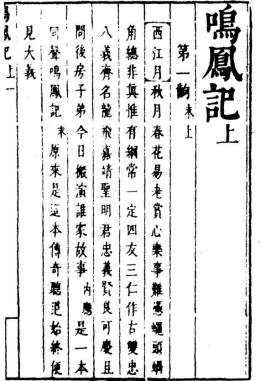 鳴鳳記上
第一齣 末上
西江月 秋月春花易老賞心樂事難憑蠅頭蝸
角總非真惟有綱常一定四友三仁作古雙忠
八義齊名龍飛嘉靖聖明君忠義賢良可慶且
問後房子弟今日搬演誰家故事 內應 是一本
同聲鳴鳳記 末 原來是這本傳奇聽道始終便
見大義
鳴鳳記 上 一